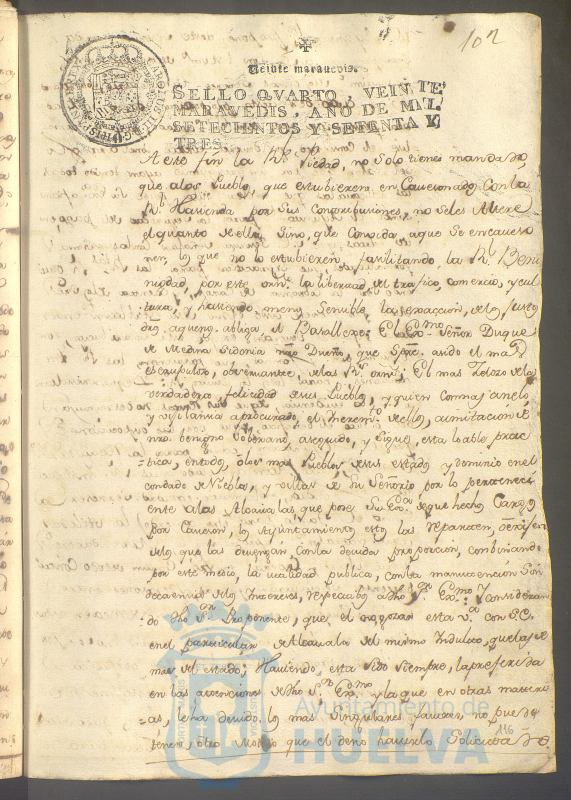 102
Veinte maravedis.
SELLO QVARTO, VEINTE
MARAVEDIS, AÑO DE MIL
SETECIENTOS Y SETENTA Y
TRES.
A este fin la Rl. Piedad, no solo tiene mandado,
que a los Pueblos, que estubieren en Cauezonados con la
Rl. Hazienda por sus Contribuziones, no se les Altere
el quanto de ellas, sino, que Convida, a que se encaueso
nen, los que no lo estubieren, facilitando la Rl. Beni
nidad, por este orn. la libertad del trafico, comercio, y cul
tura, y haziendo menos sensible la exaccion, de los
a que nos obliga el Basallaxe: El Exmo. Señor Duque
de Medina Sidonia nro Dueño, que
escrupuloso, obserwante, de las Rs. orns; El mas Zeloso de la
verdadera, felicidad de sus Pueblos, y quien con mas anelo
y vigilancia a procurado, el Incremto. de ellos, a imitacion de
nro. benigno Soberano, a seguido, y sigue, esta loable prac
tica, en todos, o los mas Pueblos de su estado, y dominio en el
condado de Niebla, y villas de su Señorio por lo pertenesi
ente a las Alcaualas, que posee Su Exa. de que hechos Cargo
por Caueson, los Ayuntamientos, estos las Reparten,
de los que las divengan, con la devida proporcion, combinando
por este medio, la utilidad publica, con la manutencion
de los Intereses, respectibos a dho Sr. Exmo. Y considerán
do dho Sr. Proponente, que, el esta va. con S.E.
en el particular de Alcauala del mismo Indulto, que las de
mas del estado; Haviendo, esta sido siempre, la preferida
en las atenciones de dho Sr. Exmo. y la que en otras materi
as, le ha devido, los mas singulares favores, no puede
tener, otro Motibo que el de no hauerlo Solicitado
116
Ayuntamiento de
HUELVA